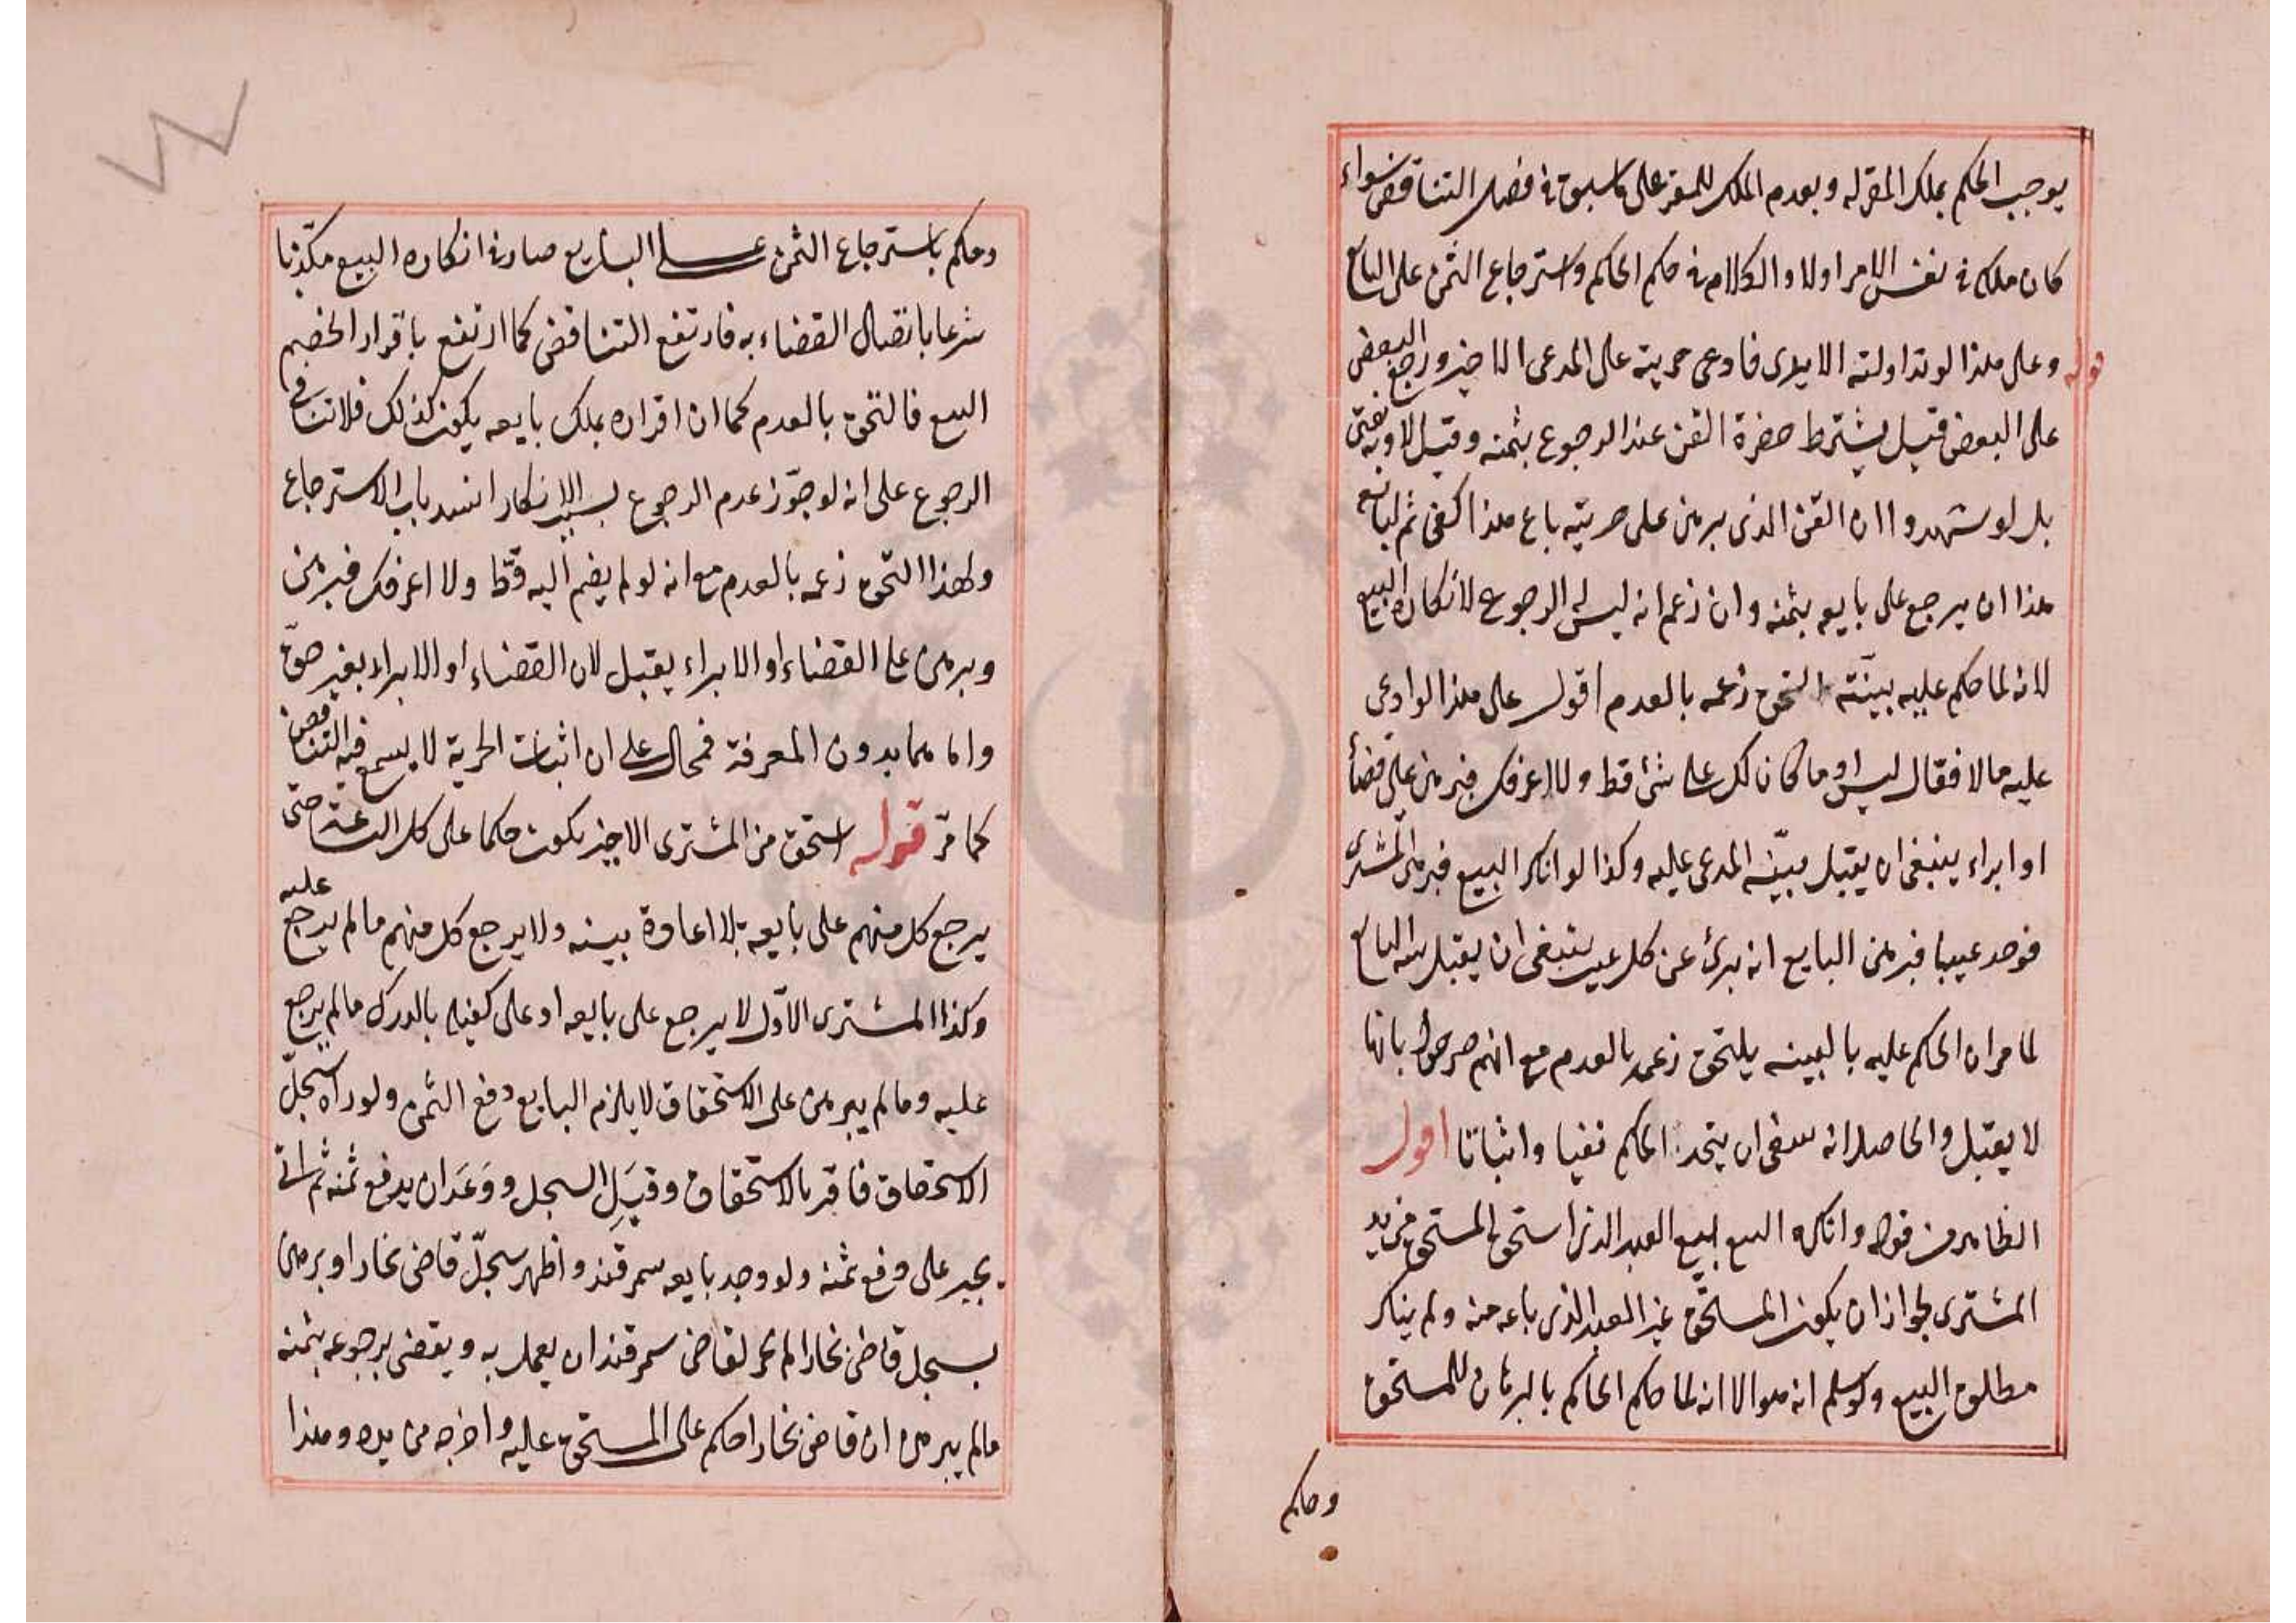 يوجب الحكم بملك المقر له وبعدم الملك للمقر على ما سبق في فصل التناقض سواء
كان ملكه في نفس الامر اولا والكلام في حكم الحاكم واسترجاع الثمن على البايع
قوله وعلى هذا لو تداولته الايدى فادعى حريته على المدعى الاخير ورجع البعض
على البعض قيل يشترط حضرة القن عند الرجوع بثمنه وقيل لا وبه يفتى
بل لو شهدوا ان القن الذى برهن على حريته باع هذا كفى ثم لبايع
هذا ان يرجع على بايعه بثمنه وان زعم انه ليس له الرجوع لانكاره البيع
لانه لما حكم عليه ببينته التحق زعمه بالعدم اقول على هذا لو ادعى
عليه مالا فقال ليس او ما كان لك على شئ قط ولا اعرفك فبرهن على قضأ
او ابراء ينبغى ان يقبل ببينة المدعى عليه وكذا لو انكر البيع فبرهن المشترى
فوجد عيبا فبرهن البايع انه برئ عن كل عيب ينبغى ان يقبل بينة البايع
لما مر ان الحكم عليه بالبينه يلتحق زعمه بالعدم مع انهم صرحوا بانها
لا يقبل والحاصل انه ينبغى ان يتحد الحكم نفيا واثباتا اقول
الظاهر من قوله وانكره البيع لبيع العبد الذى استحق المستحق من يد
المشترى لجواز ان يكون المستحق غير العبد الذى باعه منه ولم ينكر
مطلق البيع ولو سلم انه هو الا انه لما حكم الحاكم بالبرهان للمستحق
وحكم
وحكم باسترجاع الثمن على البايع صار في انكاره البيع مكذبا
شرعا باتصال القضاء به فارتفع التناقض كما ارتفع باقرار الخصم
البيع فالتحق بالعدم كما ان اقراره بملك بايعه يكون كذلك فلا تنافى
الرجوع على انه لو جوّز عدم الرجوع بسبب الانكار انسد باب الاسترجاع
ولهذا التحق زعمه بالعدم مع انه لو لم يضم اليه قطّ ولا اعرفك فبرهن
وبرهن على القضاء او الابراء يقبل لان القضاء او الابراء بغير حق
واما هما بدون المعرفة فمحال على ان اثبات الحرية لا يسمع فيه التناقض
كما مرّ قوله استحق من المشترى الاخير يكون حكما على كل الباعة حتى
يرجع كل منهم على بايعه بلا اعادة بينه ولا يرجع كل منهم ما لم يرجع عليه
وكذا المشترى الاوّل لا يرجع على بايعه او على كفيله بالدرك ما لم يرجع
عليه وما لم يبرهن على الاستحقاق لا يلزم البايع دفع الثمن ولو راه سجلّ
الاستحقاق فاقر بالاستحقاق وقَبِلَ السجل ووَعَدَ ان يدفع ثمنه ثم
يجبر على دفع ثمنه ولو وجد بايعه سمرقند واظهر سجلّ قاضى بخارا وبرهن
بسجل قاضى بخارا لم يجز لقاضى سمرقند ان يعمل به ويقضى برجوعه بثمنه
ما لم يبرهن ان قاضى بخارا حكم على المستحق عليه واخرجه من يده وهذا